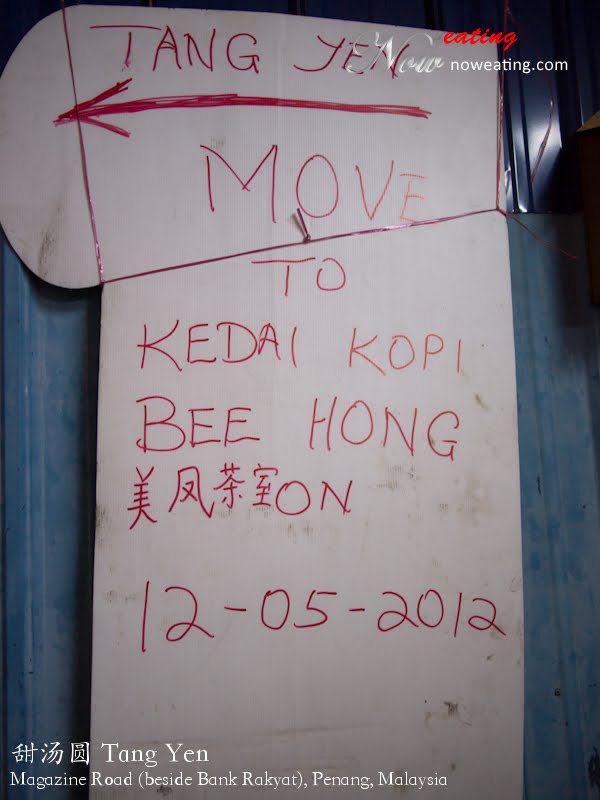 TANG YEN
Now eating
noweating.com
MOVE
TO
KEDAI KOPI
BEE HONG
美凤茶室 ON
12-05-2012
甜汤圆 Tang Yen
Magazine Road (beside Bank Rakyat), Penang, Malaysia